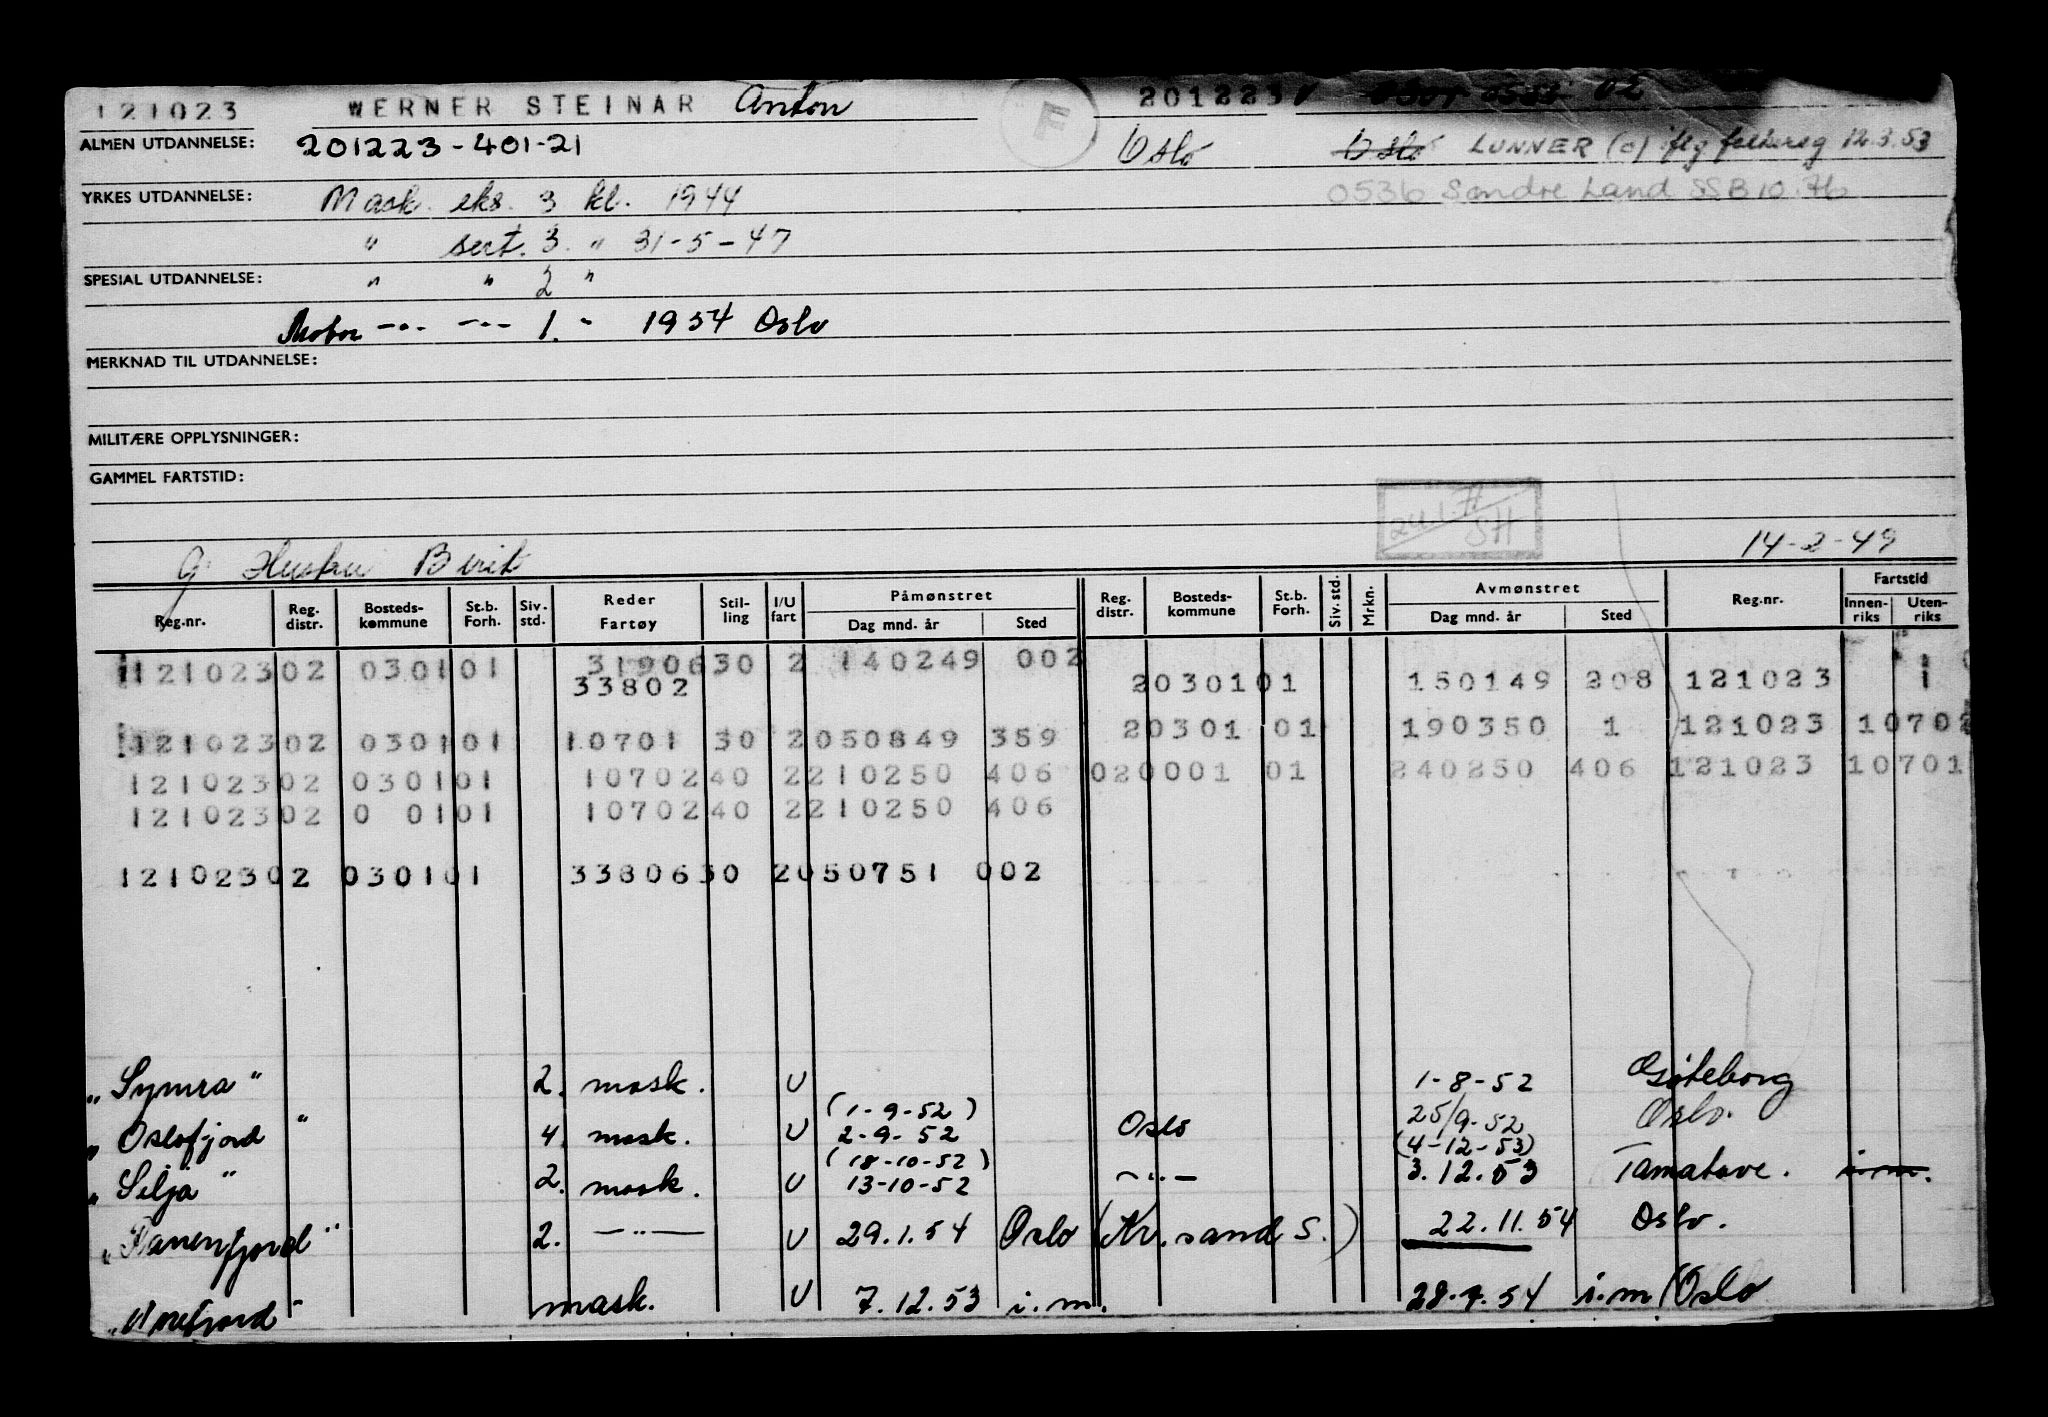 121023 WERNER STEINAR Anton 201223 02
ALMEN UTDANNELSE: 201223-401-21 Oslo Oslo LUNNER (o) iflg folkereg 12.3.53
YRKES UTDANNELSE: Mask. eks. 3 kl. 1944 0536 Søndre Land SSB 10.76
" sert. 3. " 31-5-47
SPESIAL UTDANNELSE: " " 2 "
Motor -"- -"- 1. - 1954 Oslo
MERKNAD TIL UTDANNELSE:
MILITÆRE OPPLYSNINGER:
GAMMEL FARTSTID:
SH
g. Hustru Birit 14-2-49
Reg.nr. Reg. distr. Bosteds-kommune St.b. Forh. Siv. std. Reder Fartøy Stil-ling I/U fart Påmønstret Dag mnd. år Sted Reg. distr. Bosteds-kommune St.b. Forh. Siv. std. Mrkn. Avmønstret Dag mnd. år Sted Reg.nr. Fartstid Innen-riks Uten-riks
12102302 030101 3190630 2 140249 002
33802 2030101 150149 208 121023 1
12102302 030101 10701 30 2050849 359 20301 01 190350 1 121023 10702
12102302 030101 1070240 2210250 406 020001 01 240250 406 121023 10701
12102302 0 0101 1070240 2210250 406
12102302 030101 3380630 2050751 002
"Symra" 2. mask. U 1-8-52 Gøteborg
(1-9-52)
"Oslofjord" 4. mask. U 2-9-52 Oslo 25/9-52 Oslo.
(18-10-52) (4-12-53)
"Silja" 2. mask. U 13-10-52 -"- 3.12.53 Tamatave. i.m.
"Ranenfjord" 2. -"- U 29.1.54 Oslo (Kr.sand S.) 22.11.54 Oslo.
mask. U 7.12.53 i.m. i.m/Oslo